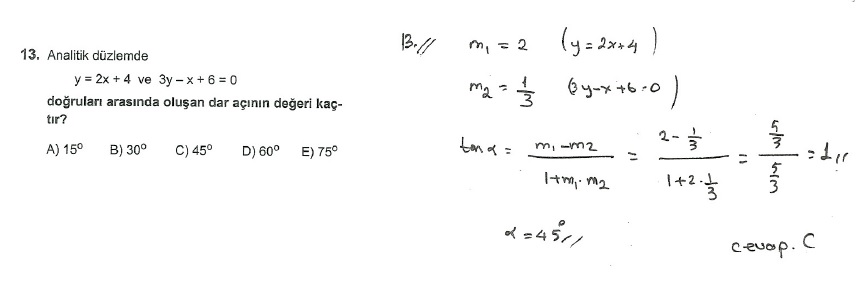 13. Analitik düzlemde
y = 2x + 4 ve 3y – x + 6 = 0
doğruları arasında oluşan dar açının değeri kaç-
tır?
A) 15⁰ B) 30⁰ C) 45⁰ D) 60⁰ E) 75⁰
13.// m₁ = 2 (y = 2x+4)
m₂ = 1/3 (3y-x+6=0)
tan α = (m₁-m₂)/(1+m₁.m₂) = (2 - 1/3)/(1+2.1/3) = (5/3)/(5/3) = 1//
α = 45°//
cevap. C